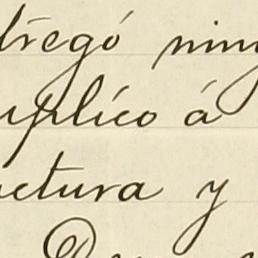 tregó ning
uplico á
ctura y